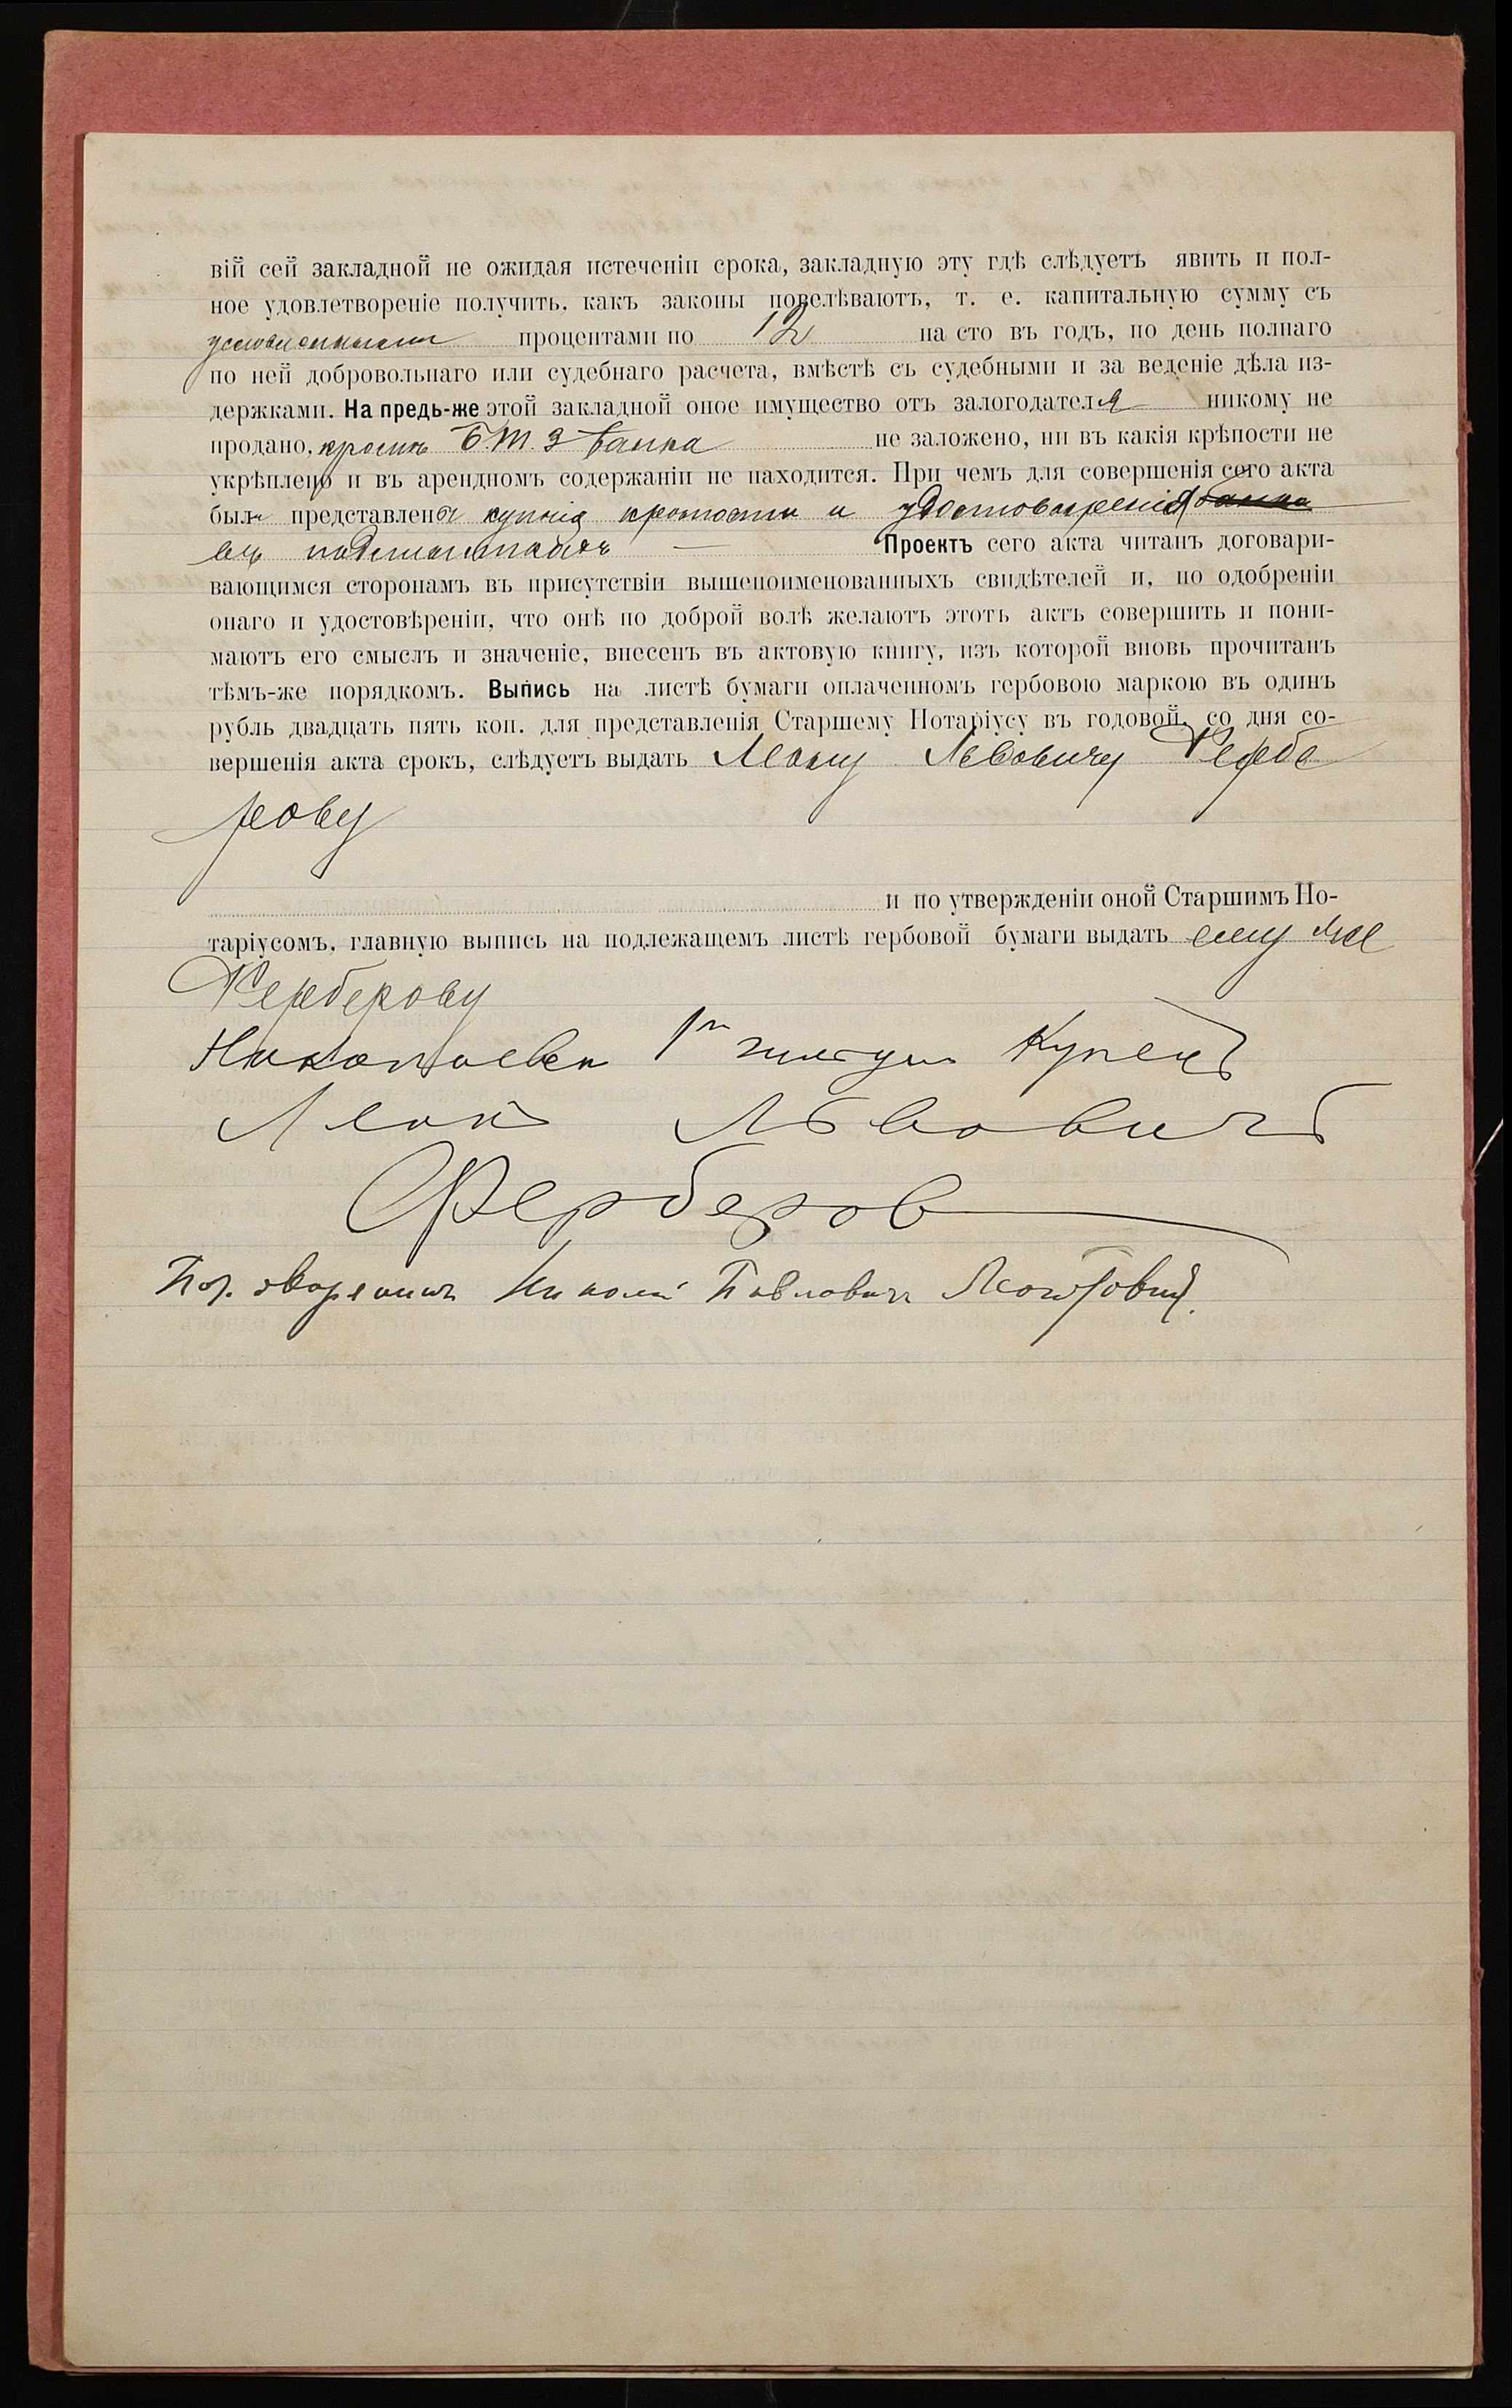 вій сей закладной не ожидая истеченіи срока, закладную эту гдѣ слѣдуетъ явить и пол-
ное удовлетвореніе получить, какъ законы повелѣваютъ, т. е. капитальную сумму съ
условленными процентами по 12 на сто въ годъ, по день полнаго
по ней добровольнаго или судебнаго расчета, вмѣстѣ съ судебными и за веденіе дѣла из-
держками. На предь-же этой закладной оное имущество отъ залогодателя никому не
продано, кромѣ Б. Т. З банка не заложено, ни въ какія крѣпости не
укрѣплено и въ арендномъ содержаніи не находится. При чемъ для совершенія сего акта
были представлена купчія крѣпости и удостовѣренія банка
Проектъ сего акта читанъ договари-
вающимся сторонамъ въ присутствіи вышепоименованныхъ свидѣтелей и, по одобреніи
онаго и удостовѣреніи, что онѣ по доброй волѣ желаютъ этотъ актъ совершить и пони-
маютъ его смыслъ и значеніе, внесенъ въ актовую книгу, изъ которой вновь прочитанъ
тѣмъ-же порядкомъ. Выпись на листѣ бумаги оплаченномъ гербовою маркою въ одинъ
рубль двадцать пять коп. для представленія Старшему Нотаріусу въ годовой, со дня со-
вершенія акта срокъ, слѣдуетъ выдать Леону Львовичу Фербе
рову
и по утвержденіи оной Старшимъ Но-
таріусомъ, главную выпись на подлежащемъ листѣ гербовой бумаги выдать ему же
Ферберову
1й гильдіи Купецъ
Леонъ Львовичъ
Ферберовъ
Пот. дворянинъ Николай Павловичъ